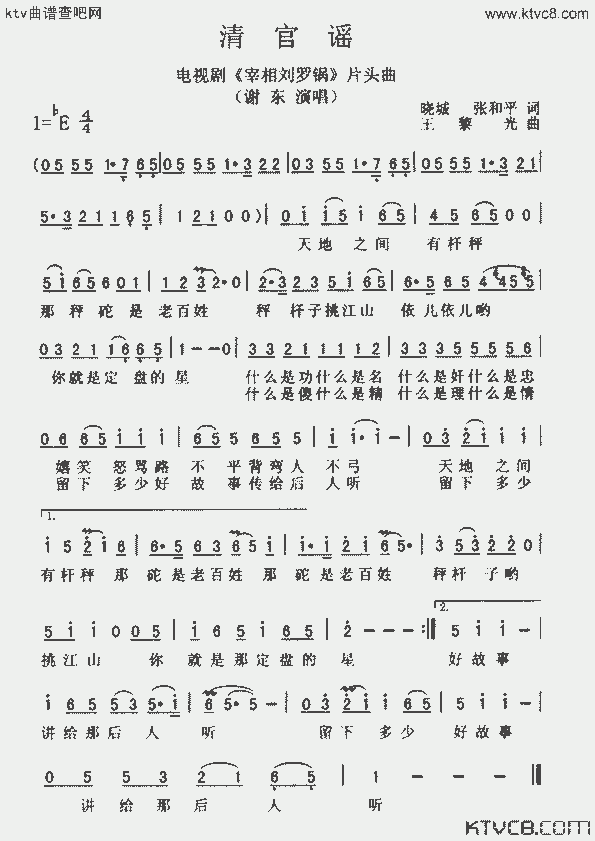 ktv曲谱查吧网 www.ktvc8.com
清官谣
电视剧《宰相刘罗锅》片头曲
（谢东 演唱）
晓城 张和平 词
王黎光 曲
1=♭E 4/4
(0 55 55 1·7 65 | 05 55 1·3 22 | 03 55 1·7 65 | 05 55 1·3 21 |
5·3 21 16 5 | 1 21 00) | 01 15 1 65 | 45 65 00 |
天地 之间 有杆秤
51 65 601 | 12 3 2·0 | 2·3 23 51 65 | 6·5 65 4 45 5 |
那秤砣是老百姓 秤杆子挑江山 依儿依儿哟
03 21 16 65 | 1 - - 0 | 33 21 11 12 | 33 35 55 56 |
你就是定盘的星 什么是功什么是名 什么是奸什么是忠
什么是傻什么是精 什么是理什么是情
06 65 1 1 | 65 5 65 5 | 1 1· 1 - | 03 21 1 1 |
嬉笑怒骂路不平背弯人不弓 天地之间
留下多少好故事传给后人听 留下多少
1.
1 5 21 6 | 6·5 63 65 1 | 1·1 21 65· | 3 53 2 20 |
有杆秤那砣是老百姓那砣是老百姓 秤杆子哟
5 1 1 005 | 1 65 1 65 | 2 - - :| 2. 5 1 1 |
挑江山 你就是那定盘的星 好故事
1 65 53 5·1 | 65· 5 - | 03 21 1 1 | 5 1 1 |
讲给那后人听 留下多少好故事
0 5 5 3 2 1 6 5 | 1 - - - |
讲给那后人听
KTVC8.COM